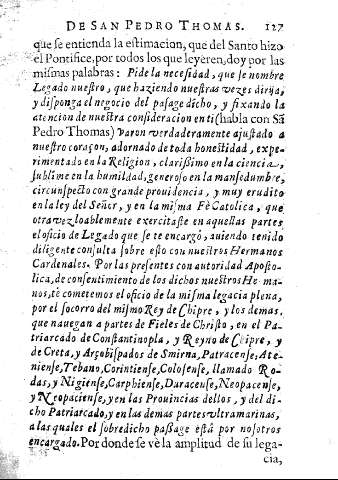 DE SAN PEDRO THOMAS. 127
que se entienda la estimacion, que del Santo hizo
el Pontifice, por todos los que leyeren, doy por las
mismas palabras: Pide la necesidad, que se nombre
Legado nuestro, que haziendo nuestras vezes dirija,
y disponga el negocio del pasage dicho, y fixando la
atencion de nuestra consideracion en ti (habla con Sã
Pedro Thomas) varon verdaderamente ajustado a
nuestro coraçon, adornado de toda honestidad, expe-
rimentado en la Religion, clarissimo en la ciencia,
sublime en la humildad, generoso en la mansedumbre,
circunspecto con grande prouidencia, y muy erudito
en la ley del Señor, y en la misma Fè Catolica, que
otra vez loablemente exercitaste en aquellas partes
el oficio de Legado que se te encargò, auiendo tenido
diligente consulta sobre esto con nuestros Hermanos
Cardenales. Por las presentes con autoridad Aposto-
lica, de consentimiento de los dichos nuestros Herma-
nos, te cometemos el oficio de la misma legacia plena,
por el socorro del mismo Rey de Chipre, y los demas,
que nauegan a partes de Fieles de Christo, en el Pa-
triarcado de Constantinopla, y Reyno de Chipre, y
de Creta, y Arçobispados de Smirna, Patracense, Ate-
niense, Tebano, Corintiense, Colosense, llamado Ro-
das, y Nigiense, Carphiense, Duracense, Neopacense,
y Neopaciense, y en las Prouincias dellos, y del di-
cho Patriarcado, y en las demas partes vltramarinas,
a las quales el sobredicho passage està por nosotros
encargado. Por donde se vè la amplitud de su lega-
cia,